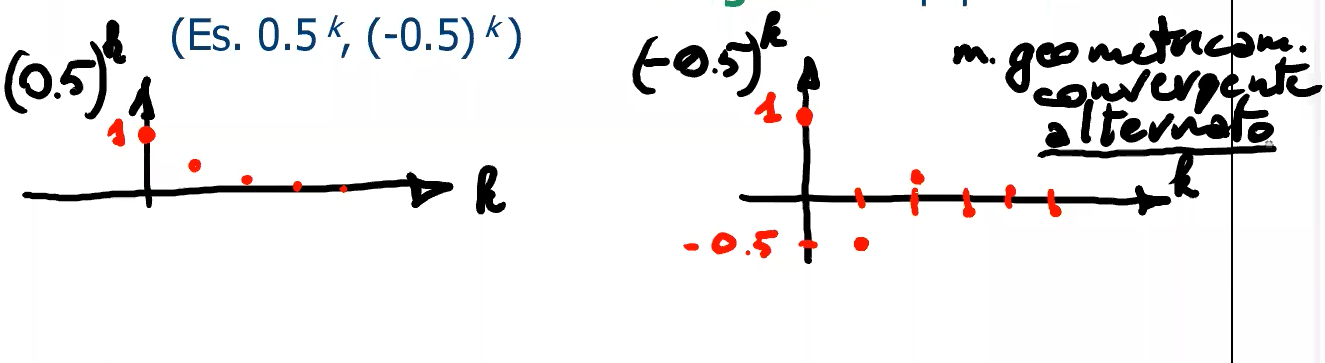 (Es. 0.5 k, (-0.5) k)
(0.5)k
1
k
(-0.5)k
1
-0.5
k
m. geometricam.
convergente
alternato